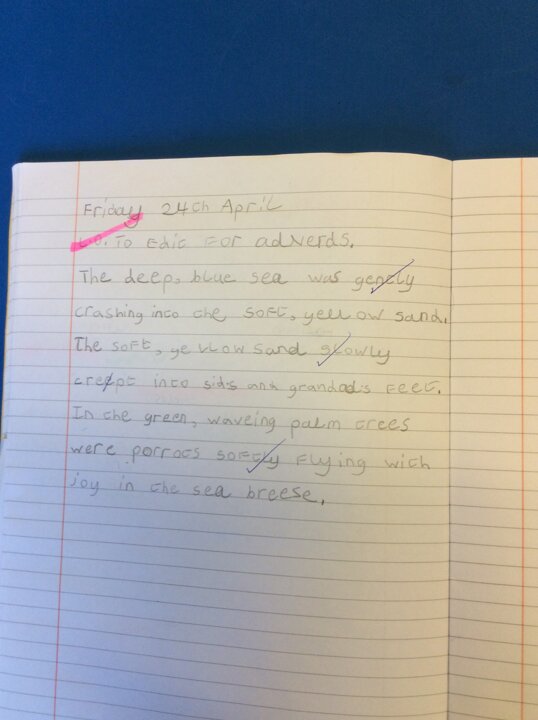 Friday 24th April
L.O. To Edit For adverds.
The deep, blue sea was gently
crashing into the soft, yellow sand.
The soft, yellow sand slowly
crept into sids and grandads feet.
In the green, waveing palm trees
were porrots softly flying with
joy in the sea breese.